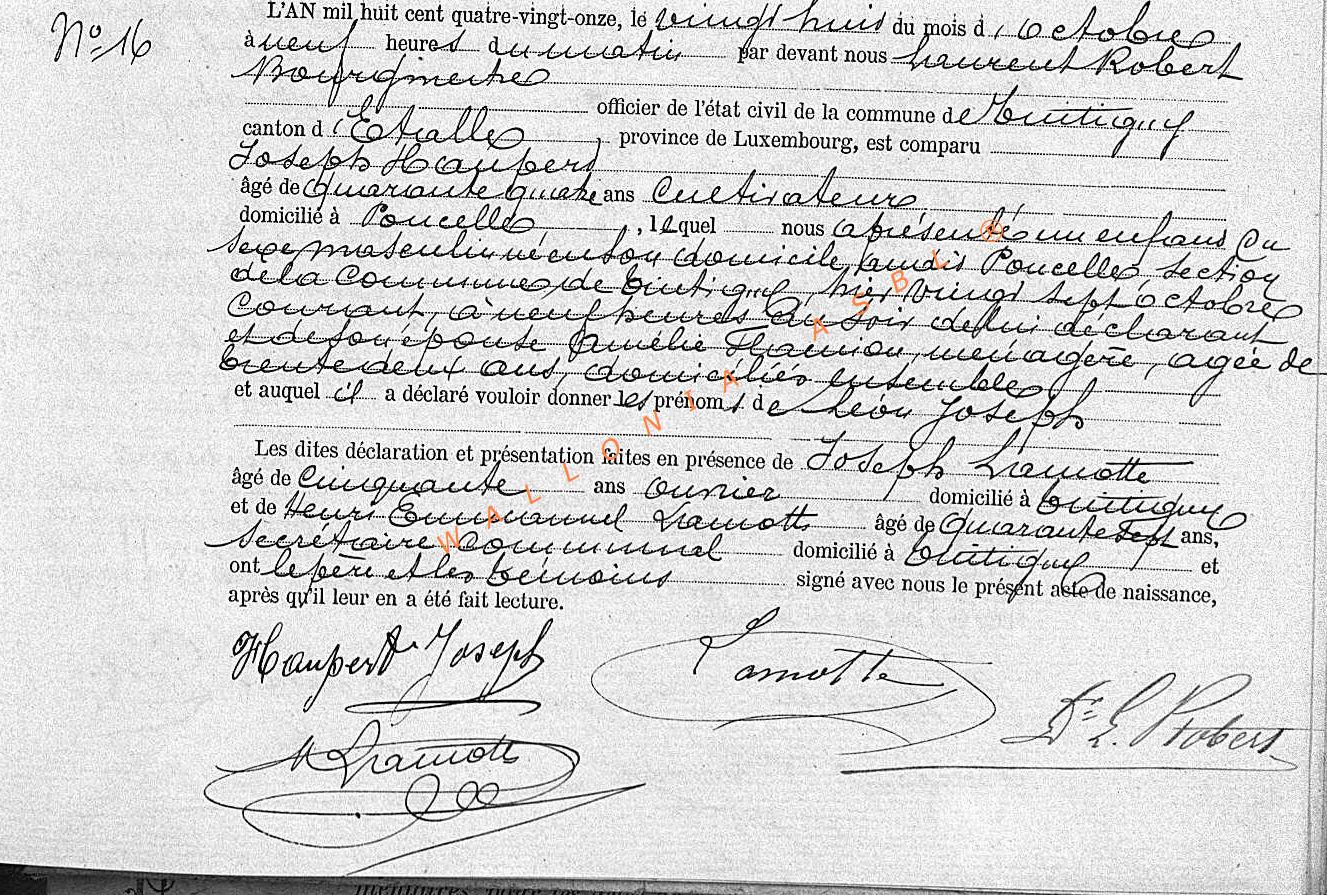 N° 16
L'AN mil huit cent quatre-vingt-onze, le vingt huit du mois d'octobre
à neuf heures du matin par devant nous Laurent Robert
Bourgmestre
officier de l'état civil de la commune de Tintigny
canton d'Etalle, province de Luxembourg, est comparu
Joseph Haupert
âgé de quarante quatre ans Cultivateur
domicilié à Poncelle, lequel nous a présenté un enfant du
sexe masculin né en son domicile, audit Poncelle, section
de la commune de Tintigny, hier vingt sept octobre
courant, à neuf heures du soir de lui déclarant
et de son épouse Amélie, ménagère, agée de
trente deux ans, domiciliés ensemble
et auquel il a déclaré vouloir donner les prénoms de Léon Joseph
Les dites déclaration et présentation faites en présence de Joseph Lamotte
âgé de Cinquante ans ouvrier domicilié à Tintigny
et de Henri Emmanuel Lamotte âgé de quarante sept ans,
secrétaire communal domicilié à Tintigny et
ont le père et les témoins signé avec nous le présent acte de naissance,
après qu'il leur en a été fait lecture.
Haupert Joseph
Lamotte
Dr L. Robert
H Lamotte
WALLONIA ASBL ©